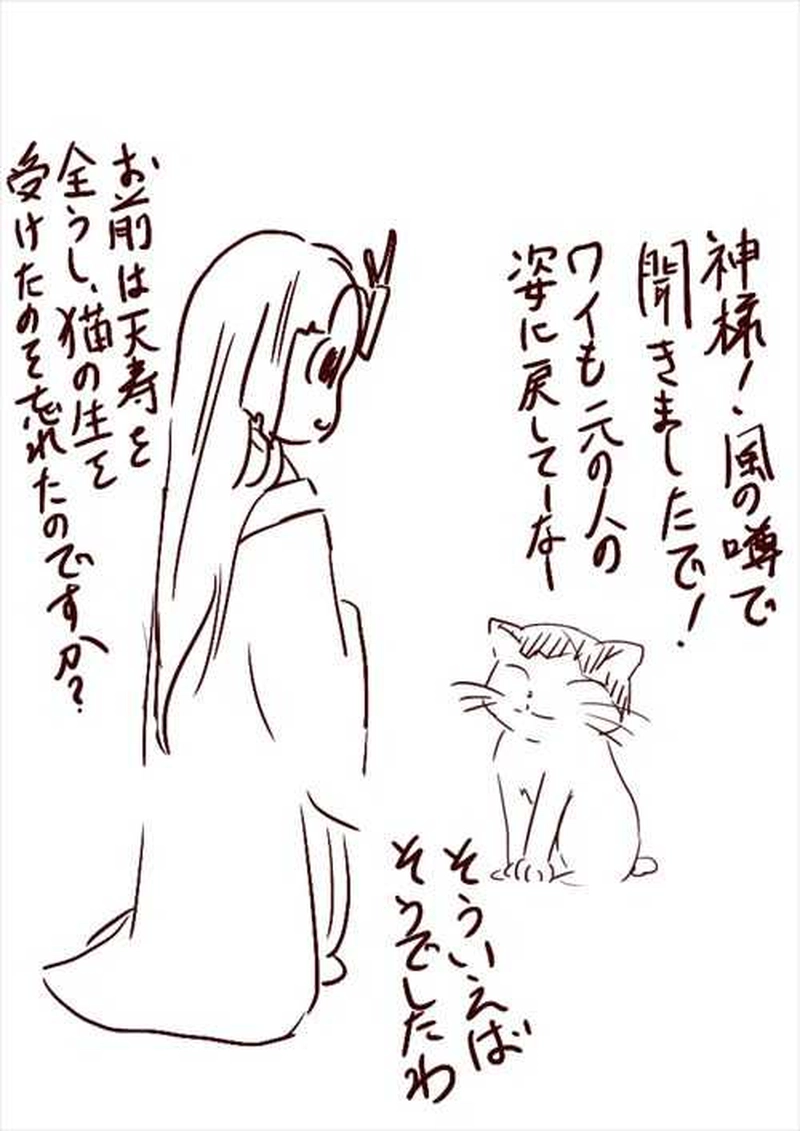 神様！風の噂で
聞きましたで！
ワイも元の人の
姿に戻してーなー
お前は天寿を
全うし、猫の生を
受けたのを忘れたのですか？
そういえば
そうでしたわ